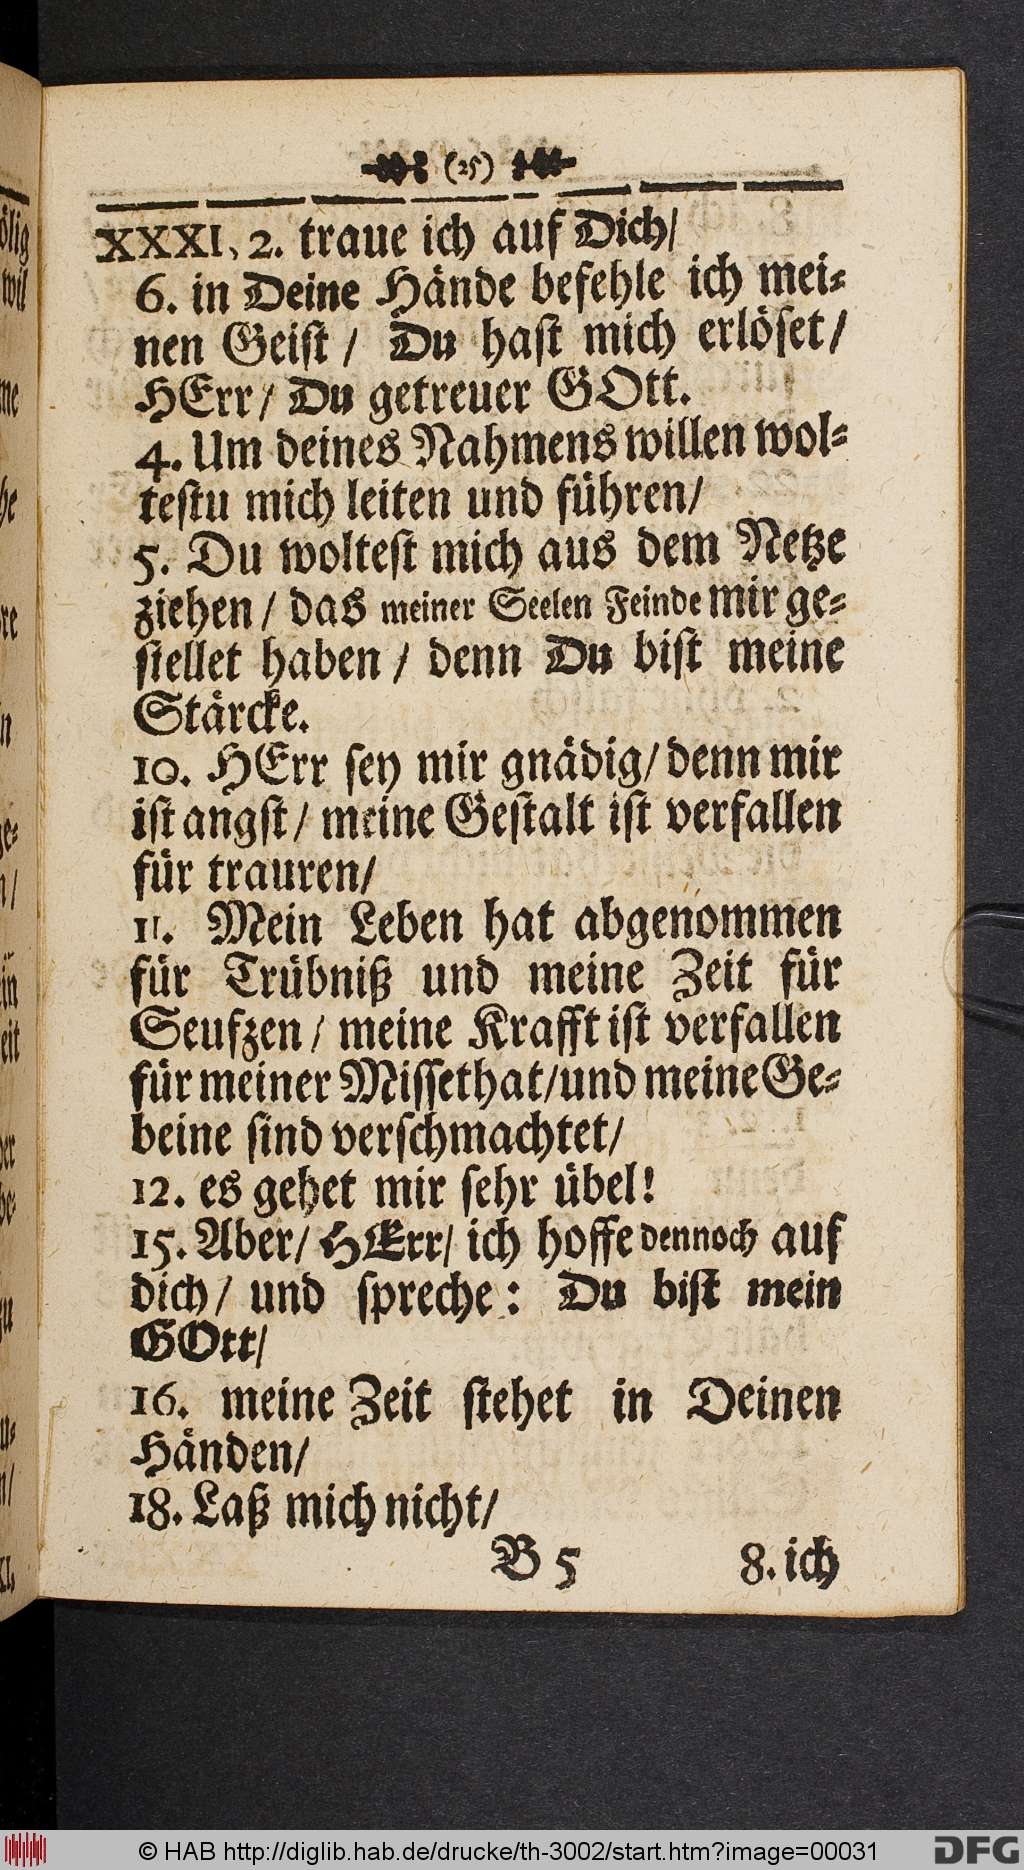 (25)
XXXI, 2. traue ich auf Dich/
6. in Deine Hände befehle ich mei=
nen Geiſt / Du haſt mich erlöſet/
HErr/ Du getreuer GOtt.
4. Um deines Nahmens willen wol=
teſtu mich leiten und führen/
5. Du wolteſt mich aus dem Netze
ziehen/ das meiner Seelen Feinde mir ge=
ſtellet haben / denn Du biſt meine
Stärcke.
10. HErr ſey mir gnädig/ denn mir
iſt angſt/ meine Geſtalt iſt verfallen
für trauren/
11. Mein Leben hat abgenommen
für Trübniß und meine Zeit für
Seufzen / meine Krafft iſt verfallen
für meiner Miſſethat/und meine Ge=
beine ſind verſchmachtet/
12. es gehet mir ſehr übel!
15. Aber/ HErr/ ich hoffe dennoch auf
dich/ und ſpreche: Du biſt mein
GOtt/
16. meine Zeit ſtehet in Deinen
Händen/
18. Laß mich nicht/
B 5 8. ich
© HAB http://diglib.hab.de/drucke/th-3002/start.htm?image=00031
DFG